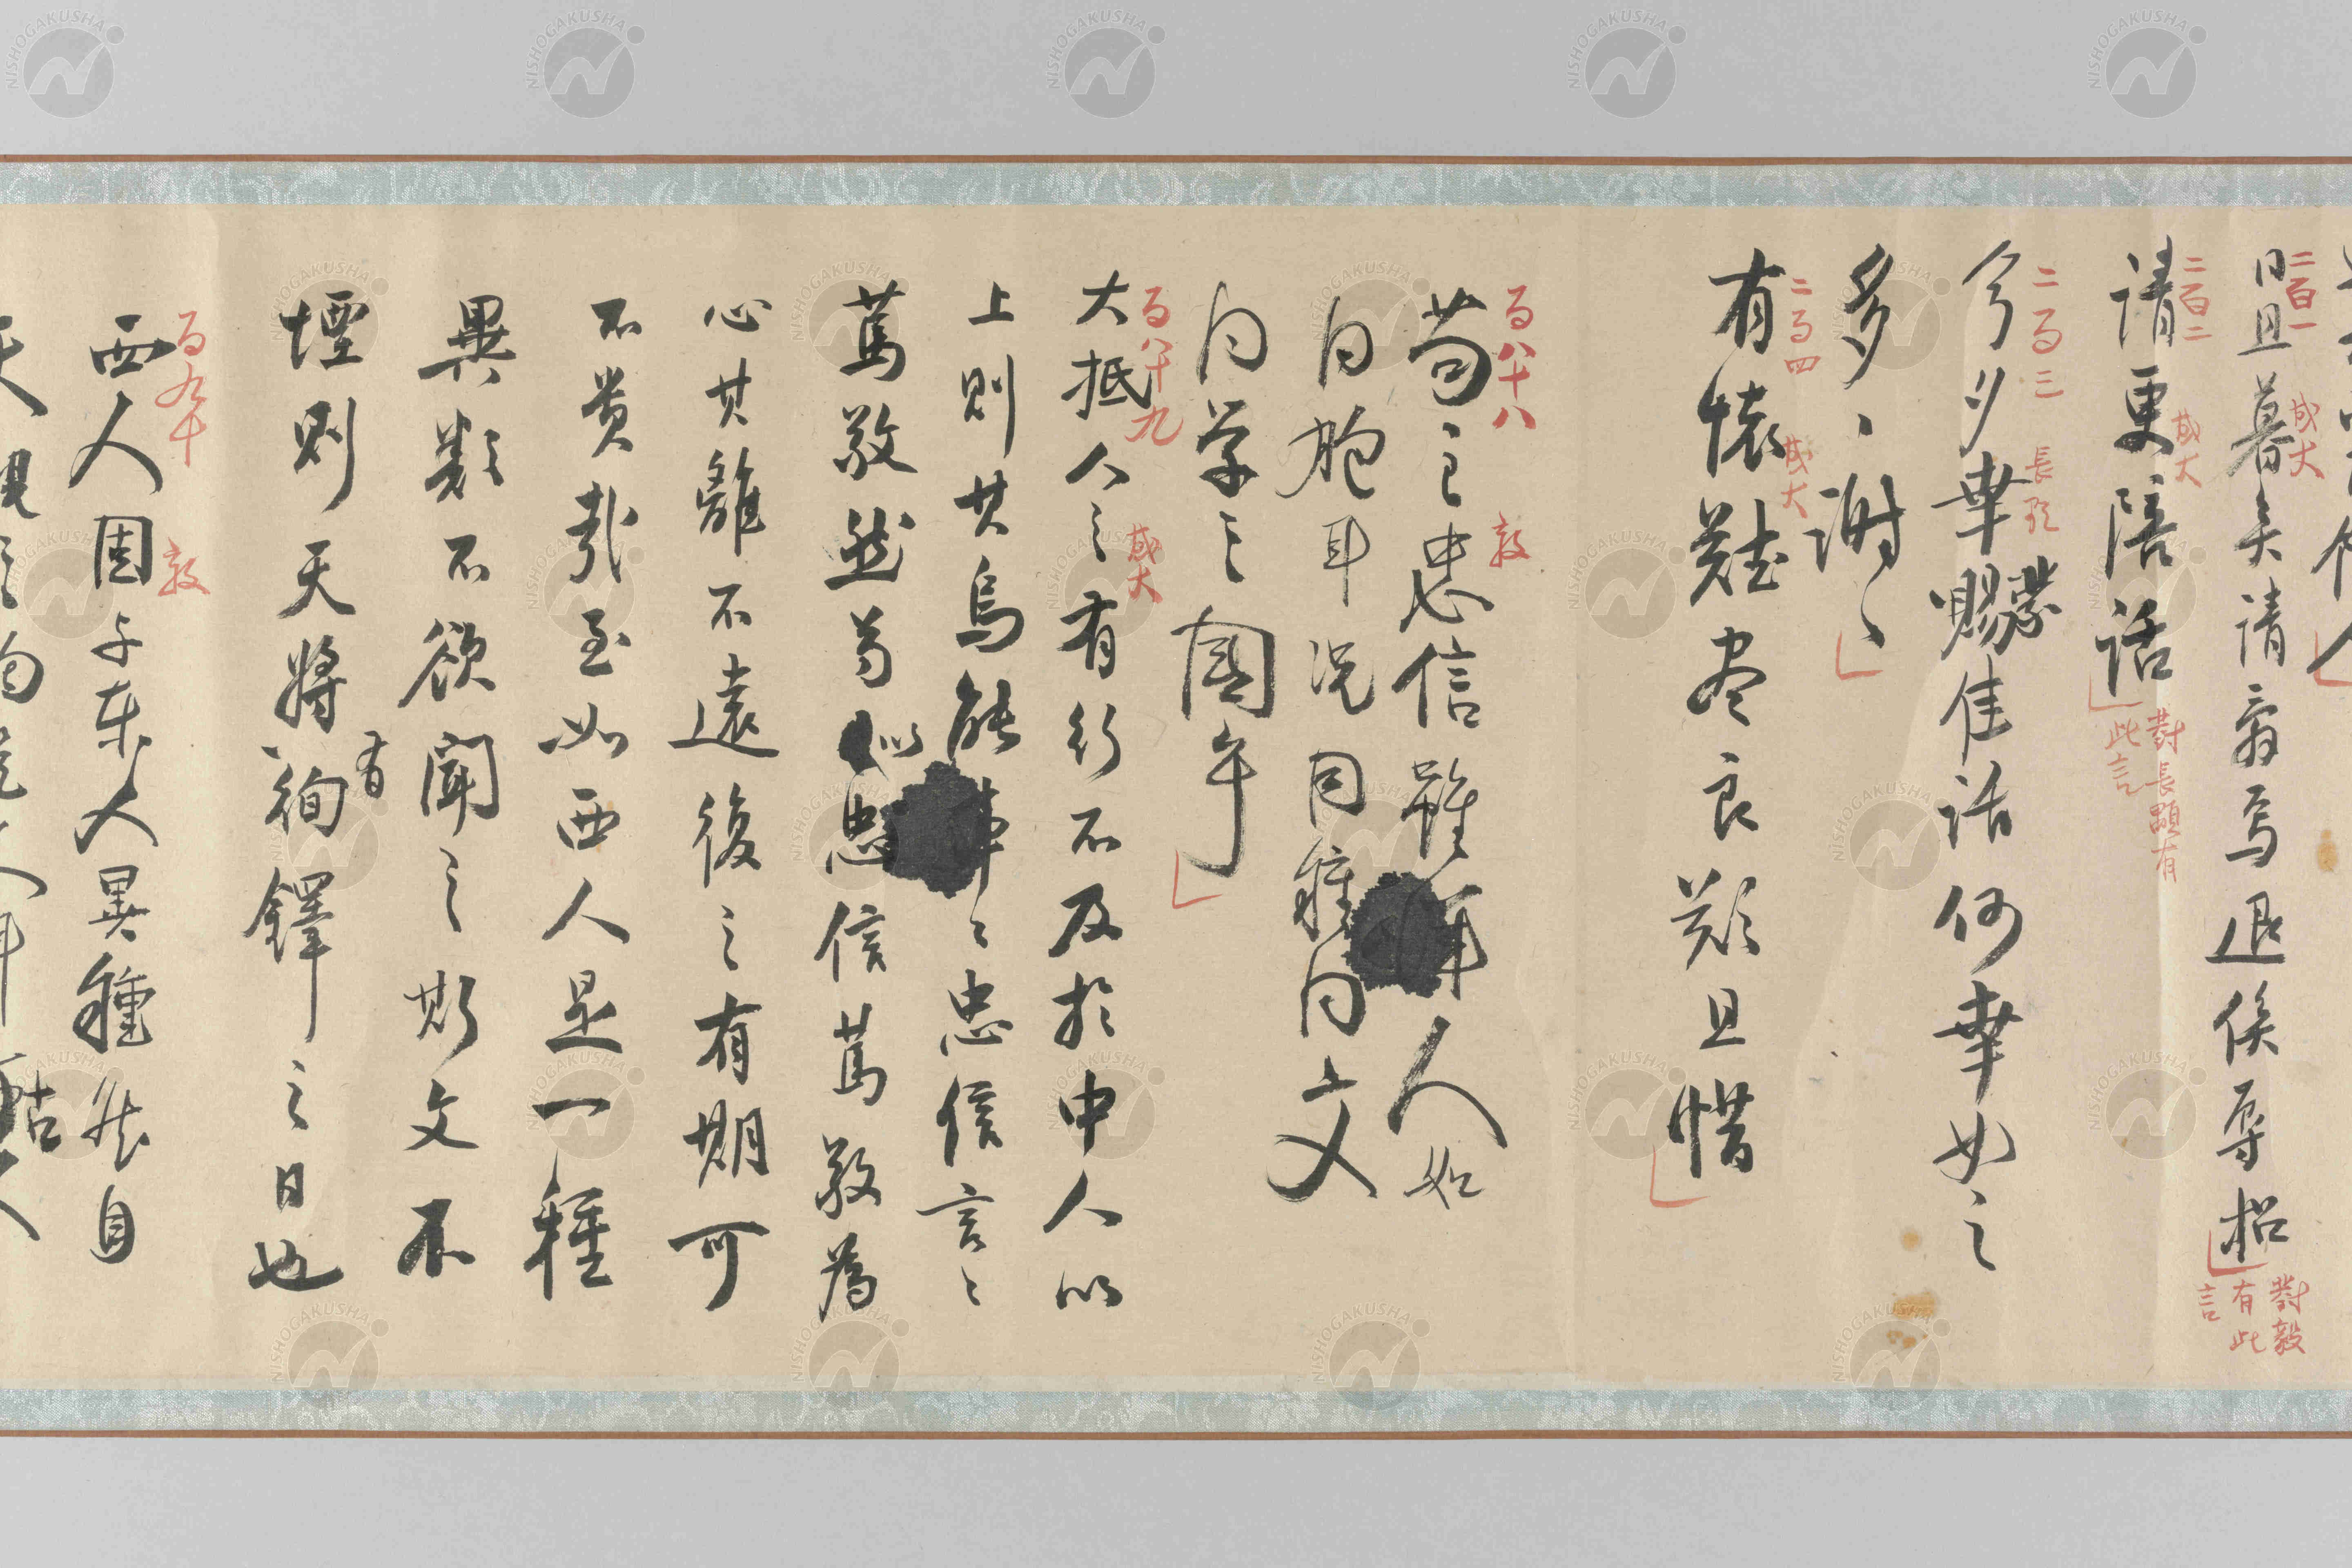 二百一 𢦙大
日且暮矣請辭焉退俟辱招
對毅有此言
二百二 𢦙大
請更陪話
對長顒有此言
二百三 長顒
今夕幸蒙賜佳話何幸如之
多、謝、
二百四
有懷難尽良歎且惜
百八十八 毅
苟言忠信雖 人如
同胞耳況同種同文
同学之国乎
百八十九
大抵人之有行不及於中人以
上則其烏能 々忠信言々
篤敬然苟以忠信篤敬為
心其離不遠復之有期可
不貴哉至如西人是一種
異類不欲聞之斯文不
堙則天將有徇鐸之日也
百九十 毅
西人固与東人異種然自